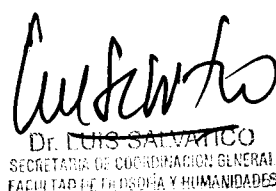 Dr. LUIS SALVATICO
SECRETARIA DE COORDINACION GENERAL
FACULTAD DE FILOSOFIA Y HUMANIDADES